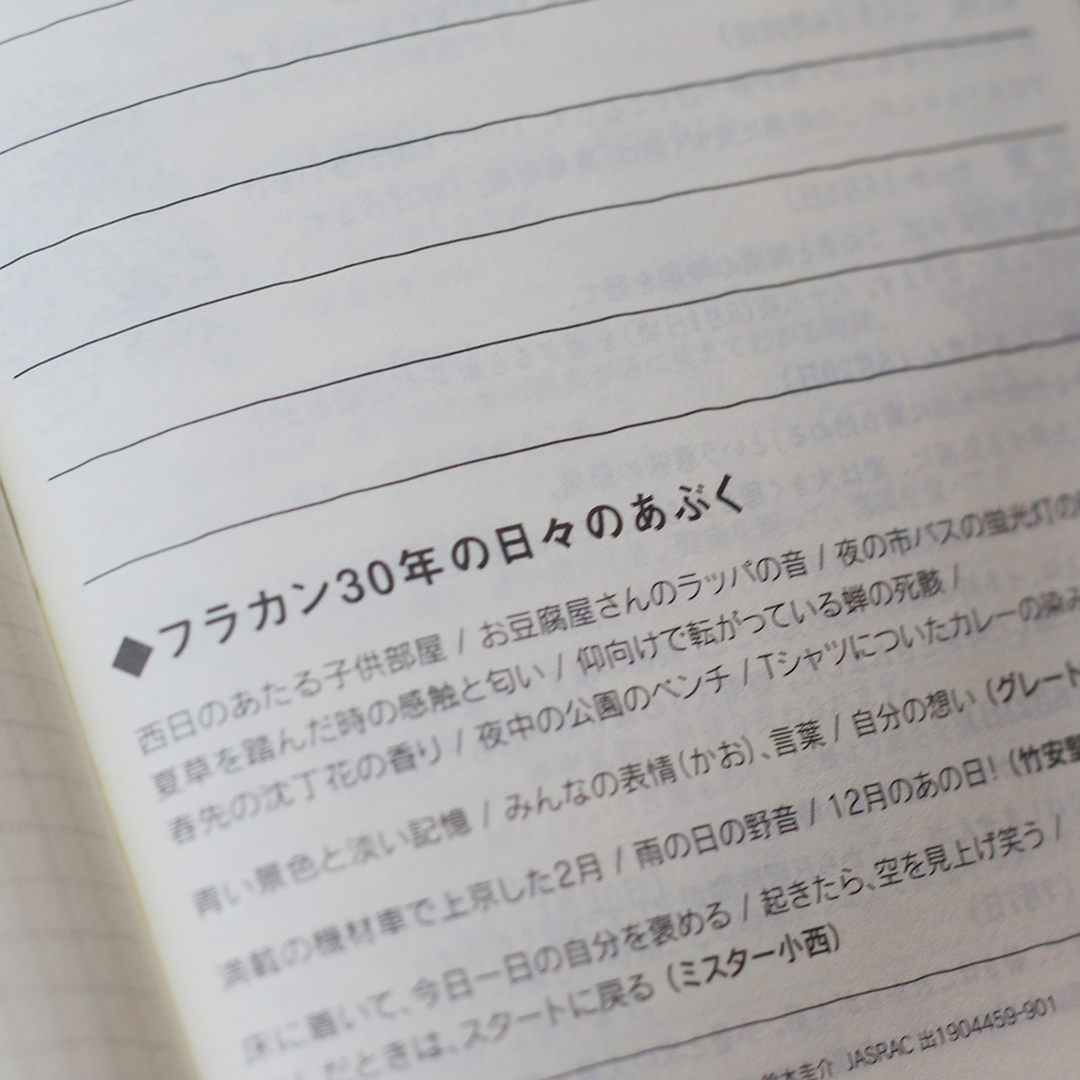 ◆フラカン30年の日々のあぶく
西日のあたる子供部屋 / お豆腐屋さんのラッパの音 / 夜の市バスの蛍光灯の
夏草を踏んだ時の感触と匂い / 仰向けで転がっている蝉の死骸 /
春先の沈丁花の香り / 夜中の公園のベンチ / Tシャツについたカレーの染み
青い景色と淡い記憶 / みんなの表情(かお)、言葉 / 自分の想い (グレート
満載の機材車で上京した2月 / 雨の日の野音 / 12月のあの日! (竹安堅
床に着いて、今日一日の自分を褒める / 起きたら、空を見上げ笑う /
だときは、スタートに戻る (ミスター小西)
鈴木圭介 JASRAC 出1904459-901